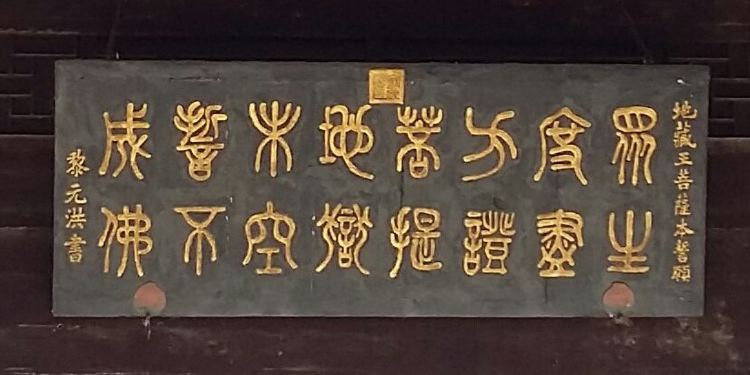 地藏王菩薩本誓願
眾生
度盡
方證
菩提
地獄
未空
誓不
成佛
黎元洪書